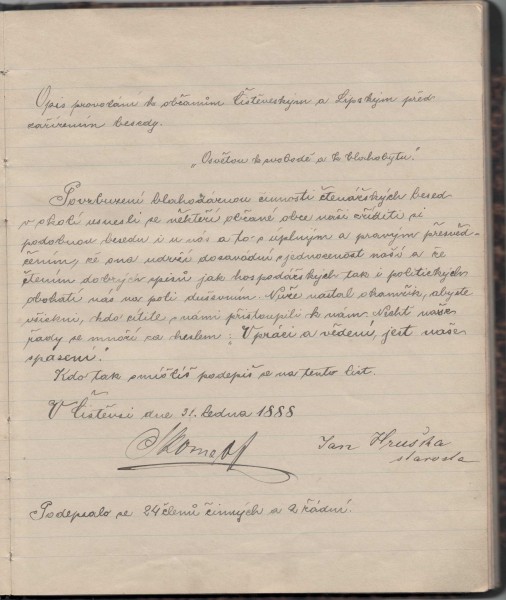 Opis provolání ke občanům Čištěveským a Lipským před
zařízením besedy.
„Osvětou ke svobodě a ke blahobytu.“
Povzbuzeni blahodárnou činností čtenářských besed
v okolí usnesli se někteří občané obce naší zříditi si
podobnou besedu i u nás a to s úplným a pravým přesvěd-
čením, že ona udrží dosavádní jednocenost naší a že
čtením dobrých spisů jak hospodářských tak i politických
obohatí nás na poli duševním. Nyní nastal okamžik, abyste
všickni, kdo cítíte s námi přistoupili k nám. Nechť naše
řady se množí za heslem: V práci a vědění, jest naše
spasení!
Kdo tak smýšlíš podepiš se na tento list.
V Čištěvsi dne 31. ledna 1888
Jan Hruška
starosta
Podepsalo se 24 členů činných a 2 řádní.